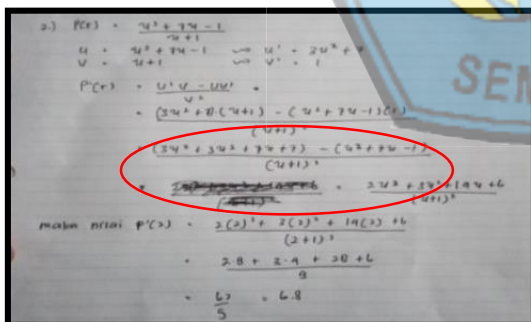 2.) P(x) = x³ + 7x - 1 / x+1
u = x³ + 7x - 1 ~> u' = 3x² + 7
v = x+1 ~> v' = 1
P'(x) = u'v - uv' / v² =
= (3x² + 7)(x+1) - (x³ + 7x - 1)(1) / (x+1)²
= (3x³ + 3x² + 7x + 7) - (x³ + 7x - 1) / (x+1)²
= 2x³ + 3x² + 14x + 6 / (x+1)²
maka nilai P'(2) = 2(2)³ + 3(2)² + 14(2) + 6 / (2+1)²
= 2.8 + 3.4 + 28 + 6 / 9
= 62 / 9 = 6.8
SEM